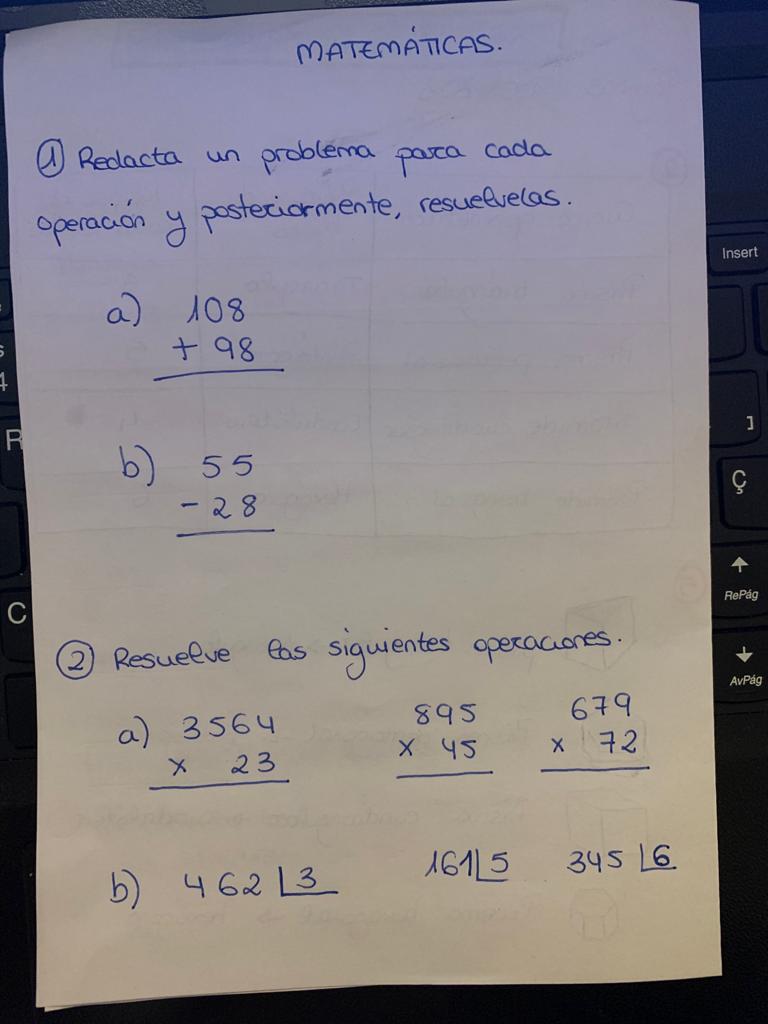 MATEMÁTICAS.
① Redacta un problema para cada
operación y posteriormente, resuelvelas.
a) 108
+ 98
b) 55
- 28
② Resuelve las siguientes operaciones.
a) 3564 895 679
x 23 x 45 x 72
b) 462 |3 161|5 345 |6
Insert
R
]
Ç
C
↑
RePág
↓
AvPág